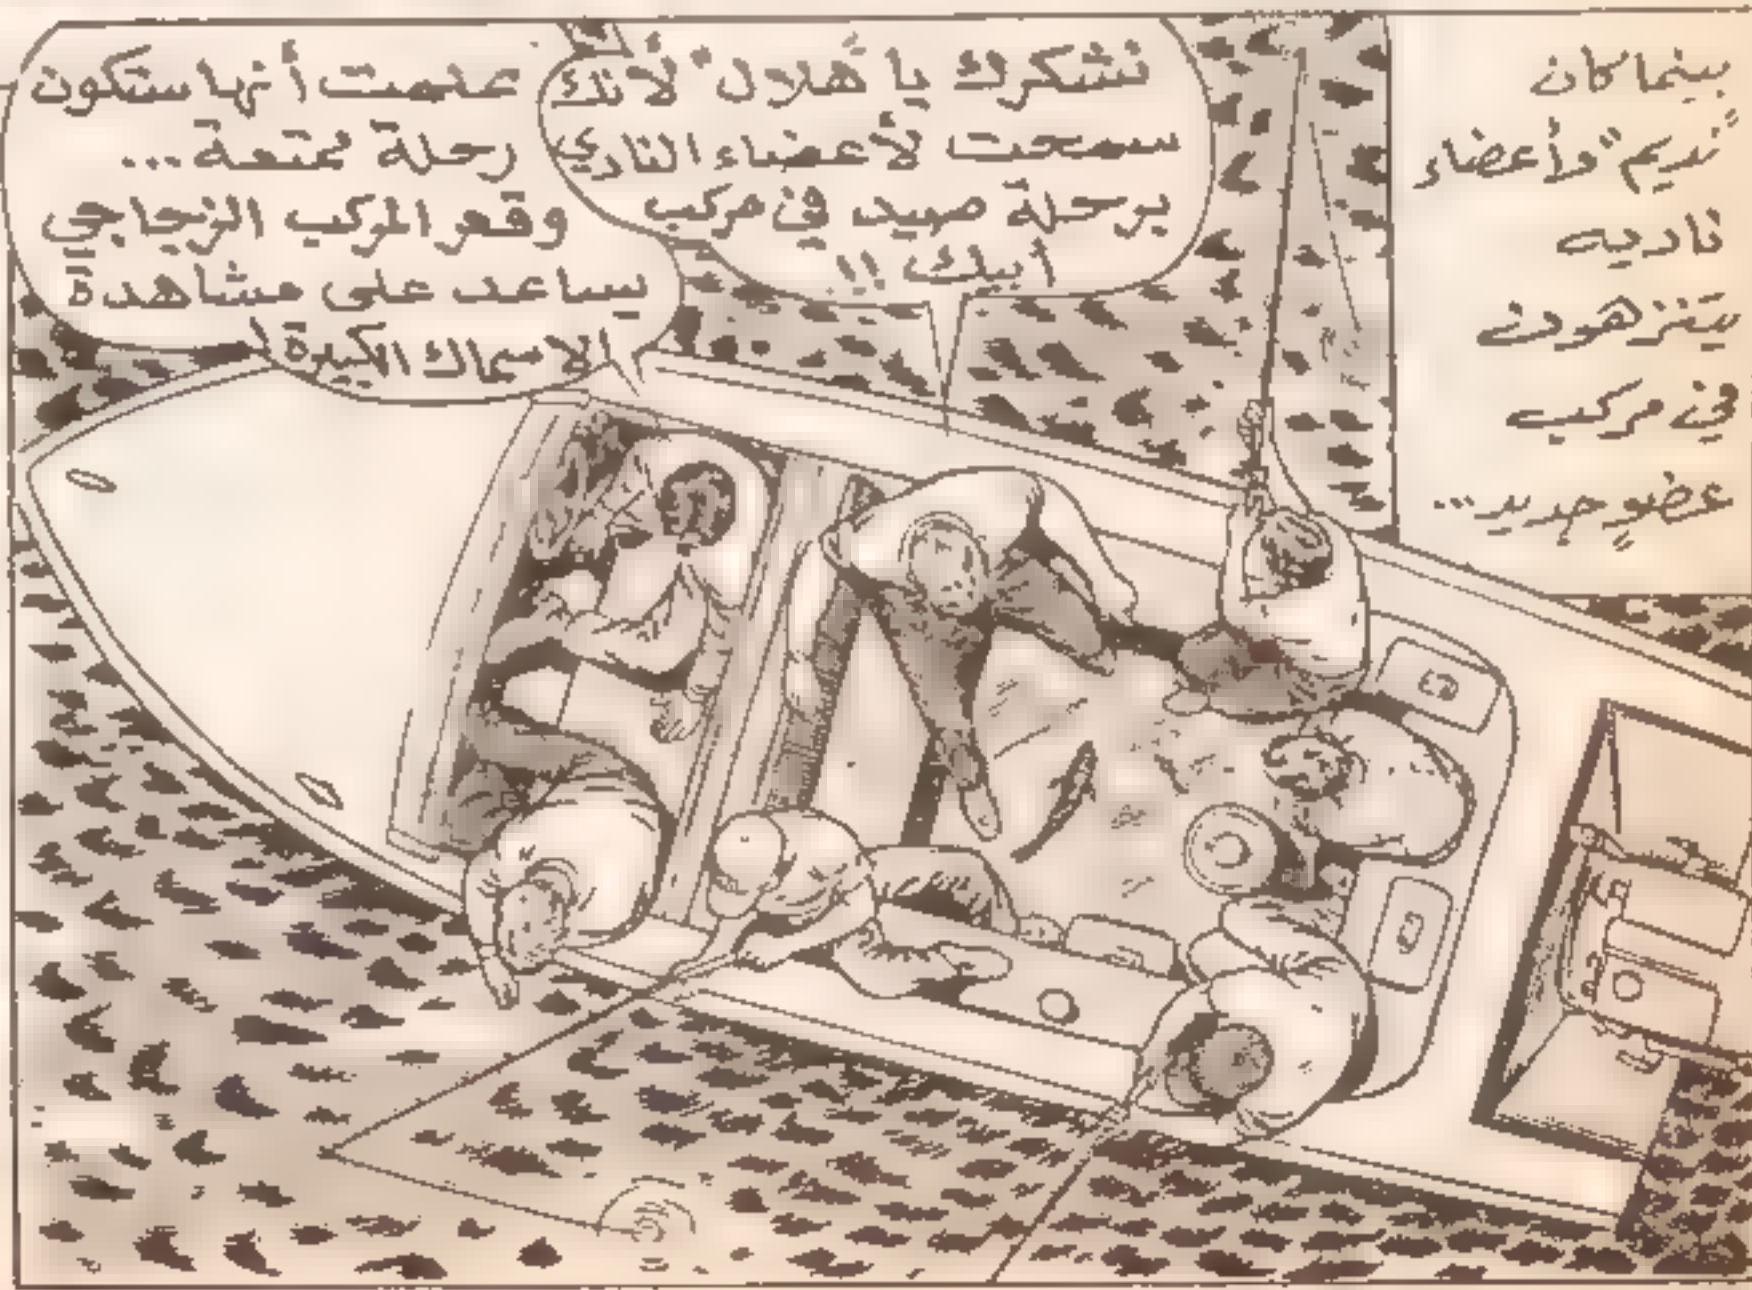 بينما كان
"نديم" وأعضاء
ناديه
يتنزهون
في مركب
عضوٍ جديد...
نشكرك يا "هلال" لأنك
سمحت لأعضاء النادي
برحلة صيد في مركب
أبيك !!
علمت أنها ستكون
رحلة ممتعة...
وقعر المركب الزجاجي
يساعد على مشاهدة
الاسماك الكبيرة!